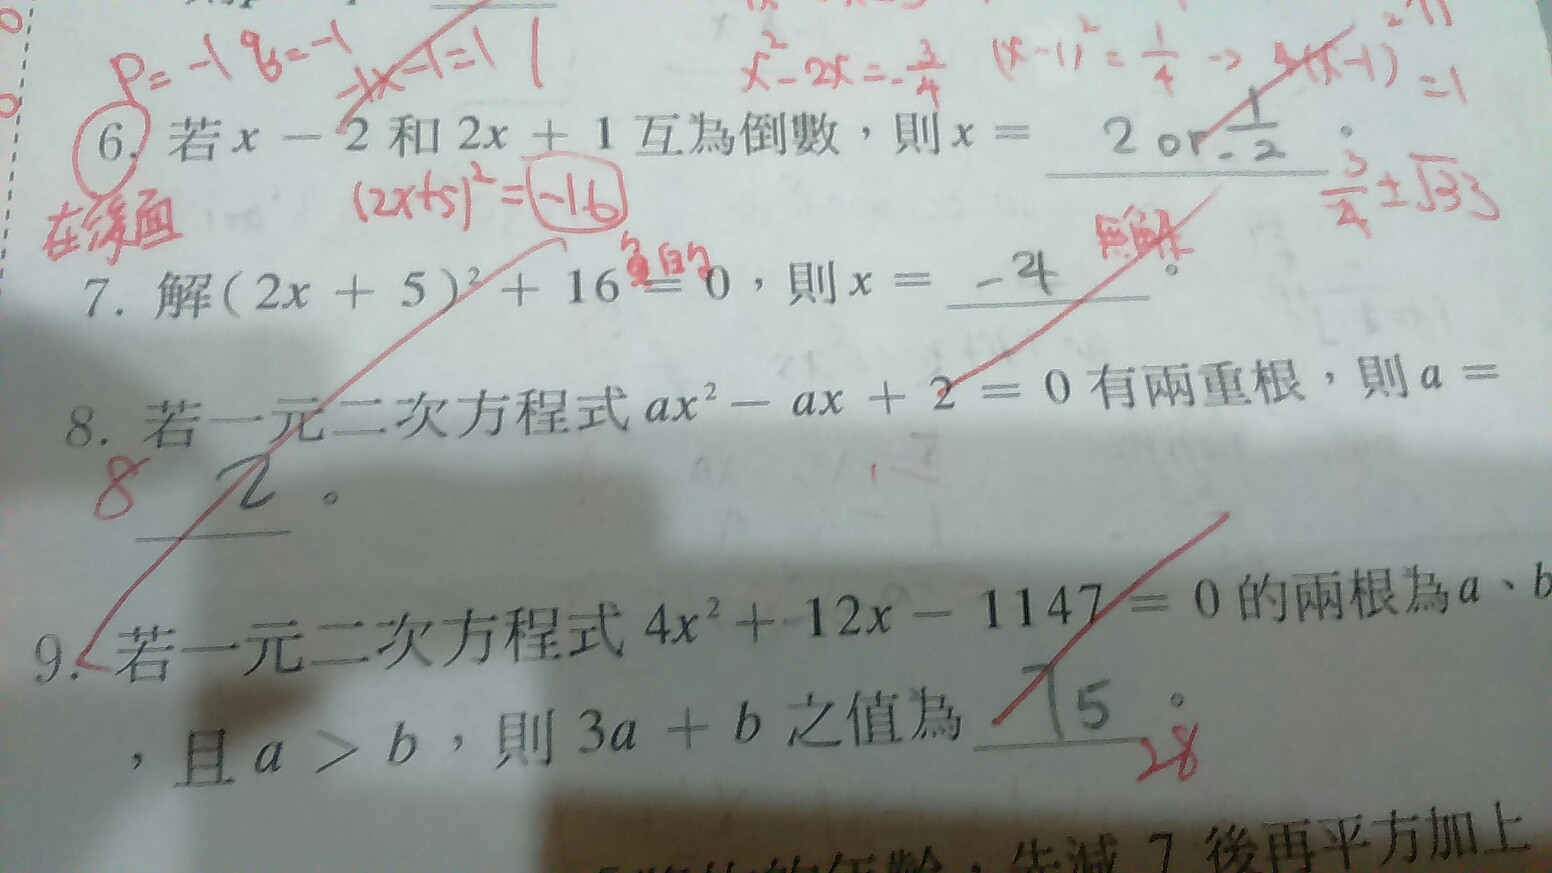 P=-1 q=-1
-1x-1=1 1
x²-2x=-3/4 (x-1)²=1/4 → 4(x-1)²=1
6. 若 x - 2 和 2x + 1 互為倒數，則 x = 2 or 1/-2 。
在後面
3/4±√33
(2x+5)²=-16
負的
無解
7. 解(2x + 5)² + 16 = 0，則 x = -4 。
8. 若一元二次方程式 ax² - ax + 2 = 0 有兩重根，則 a =
8 2 。
9. 若一元二次方程式 4x² + 12x - 1147 = 0 的兩根為 a、b
，且 a > b，則 3a + b 之值為 75 。
28
年齡，先減 7 後再平方加上